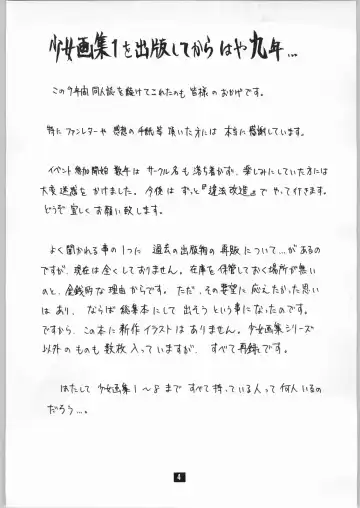 少女画集1を出版してからはや九年…
この9年間同人誌を続けてこれたのも皆様のおかげです。
特にファンレターや感想の手紙等頂いた方には本当に感謝しています。
イベント参加開始数年はサークル名も落ち着かず、楽しみにしていた方には
大変迷惑をかけました。今後はずっと『違法改造』でやって行きます。
どうぞ宜しくお願い致します。
よく聞かれる事の1つに過去の出版物の再販について…があるの
ですが、現在は全くしておりません。在庫を保管しておく場所が無い
のと、金銭的な理由からです。ただ、その要望に応えたかった思い
はあり、ならば総集本にして出そうという事になったのです。
ですから、この本に新作イラストはありません。少女画集シリーズ
以外のものも数枚入っていますが、すべて再録です。
はたして少女画集1〜8まですべて持っている人って何人いるの
だろう…。
4